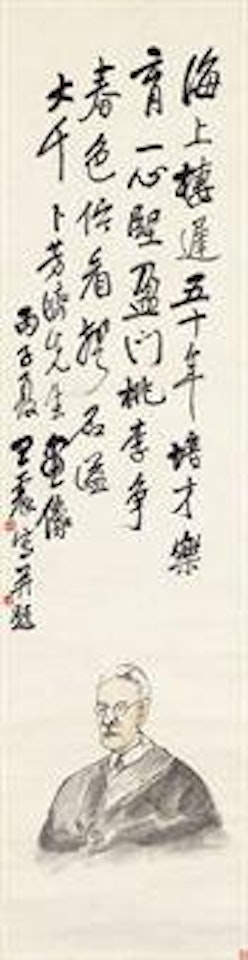 海上棲遲五十年培才樂
育一心堅盈門桃李爭
春色佇看聲名溢
大千 卜芳濟先生畫像
丙子夏 王震寫并題